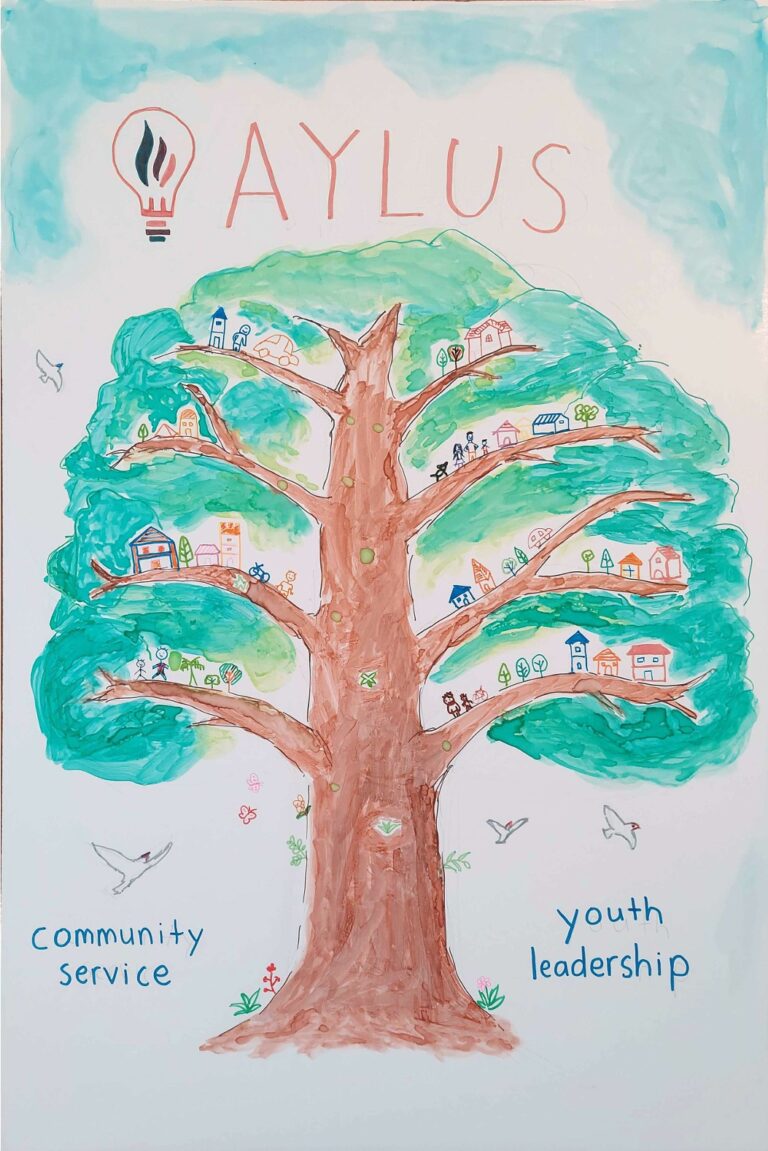 AYLUS
community
service
youth
leadership